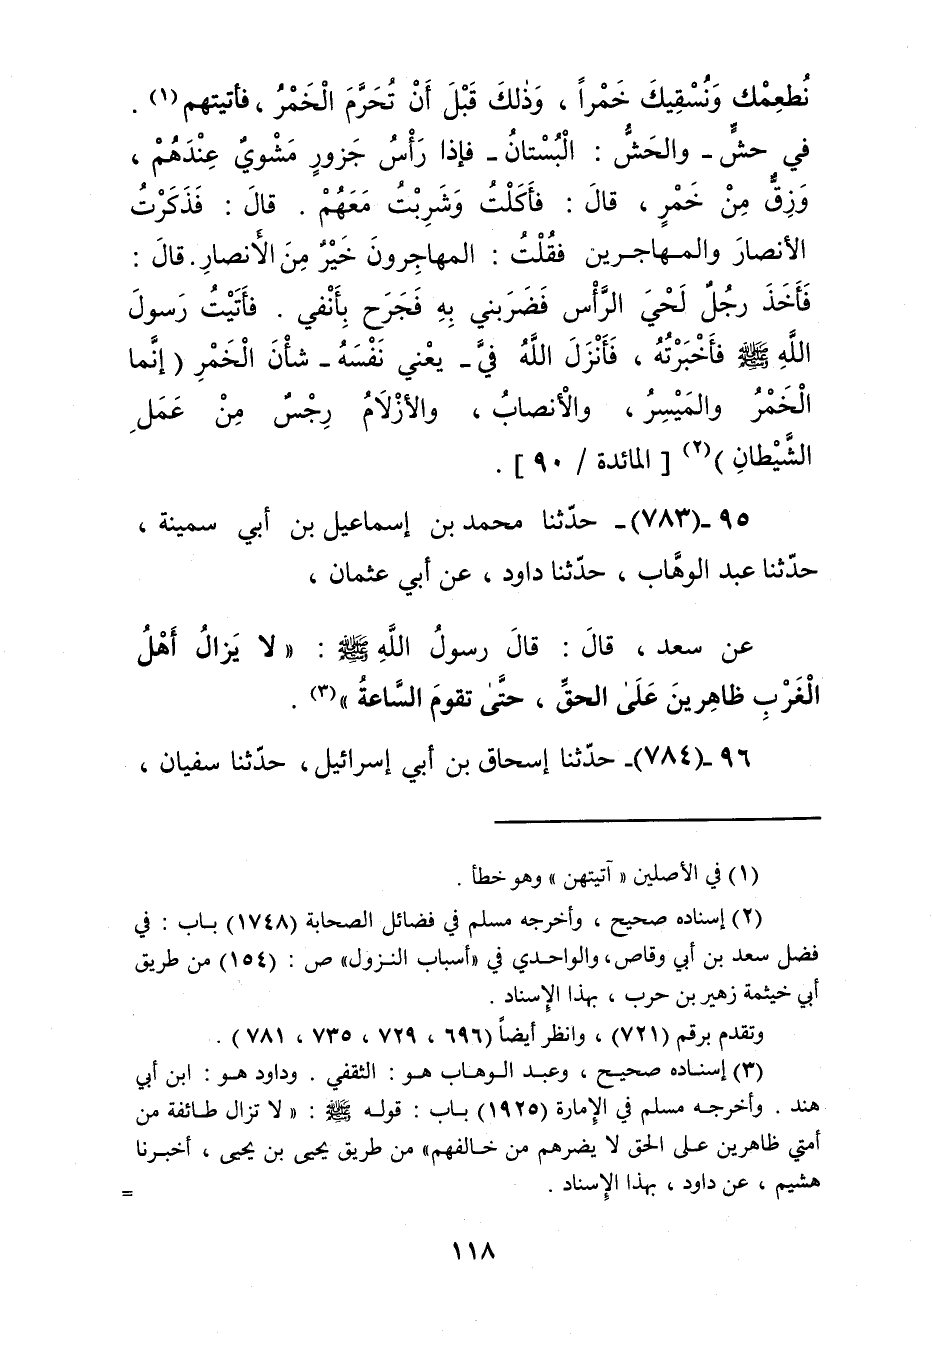 نُطعِمْك وَنُسْقِيكَ خَمْراً ، وَذٰلكَ قَبْلَ أَنْ تُحَرَّمَ الْخَمْرُ ، فأتيتهم(١) .
في حشٍّ ـ والحَشُّ : الْبُسْتانُ ـ فإذا رَأْسُ جَزورٍ مَشْويٌ عِنْدَهُمْ ،
وَزِقٌّ مِنْ خَمْرٍ ، قالَ : فأَكَلْتُ وَشَرِبْتُ مَعَهُمْ . قالَ : فَذَكَرْتُ
الأنصارَ والمهاجرين فقُلْتُ : المهاجِرونَ خَيْرٌ مِنَ الأَنصارِ. قالَ :
فَأَخَذَ رجُلٌ لَحْيَ الرَّأْس فَضَرَبني بِهِ فَجَرَح بِأَنْفي . فأتَيْتُ رَسولَ
اللَّهِ ﷺ فأخْبَرْتُهُ ، فَأَنْزَلَ اللَّهُ فيَّ ـ يعْني نَفْسَهُ ـ شأْنَ الْخَمْرِ ( إنَّما
الْخَمْرُ والمَيْسِرُ ، والْأنصابُ ، والأزْلَامُ رِجْسٌ مِنْ عَمَلِ
الشَّيْطانِ )(٢) [ المائدة / ٩٠ ] .
٩٥ ـ(٧٨٣)ـ حدّثنا محمد بن إسماعيل بن أبي سمينة ،
حدّثنا عبد الوهَّاب ، حدّثنا داود ، عن أبي عثمان ،
عن سعد ، قالَ : قالَ رسولُ اللَّهِ ﷺ : « لا يَزالُ أَهْلُ
الْغَرْبِ ظاهِرينَ عَلَىٰ الحقِّ ، حتَّىٰ تقومَ السَّاعةُ »(٣) .
٩٦ ـ(٧٨٤)ـ حدّثنا إسحاق بن أبي إسرائيل ، حدّثنا سفيان ،
(١) في الأصلين « آتيتهن » وهو خطأ .
(٢) إسناده صحيح ، وأخرجه مسلم في فضائل الصحابة (١٧٤٨) باب : في
فضل سعد بن أبي وقاص، والواحدي في «أسباب النزول» ص : (١٥٤) من طريق
أبي خيثمة زهير بن حرب ، بهذا الإسناد .
وتقدم برقم (٧٢١) ، وانظر أيضاً (٦٩٦ ، ٧٢٩ ، ٧٣٥ ، ٧٨١ ) .
(٣) إسناده صحيح ، وعبد الوهاب هو : الثقفي . وداود هو : ابن أبي
هند . وأخرجه مسلم في الإمارة (١٩٢٥) باب : قوله ﷺ : « لا تزال طائفة من
أمتي ظاهرين على الحق لا يضرهم من خالفهم» من طريق يحيى بن يحيى ، أخبرنا
هشيم ، عن داود ، بهذا الإسناد .
=
١١٨